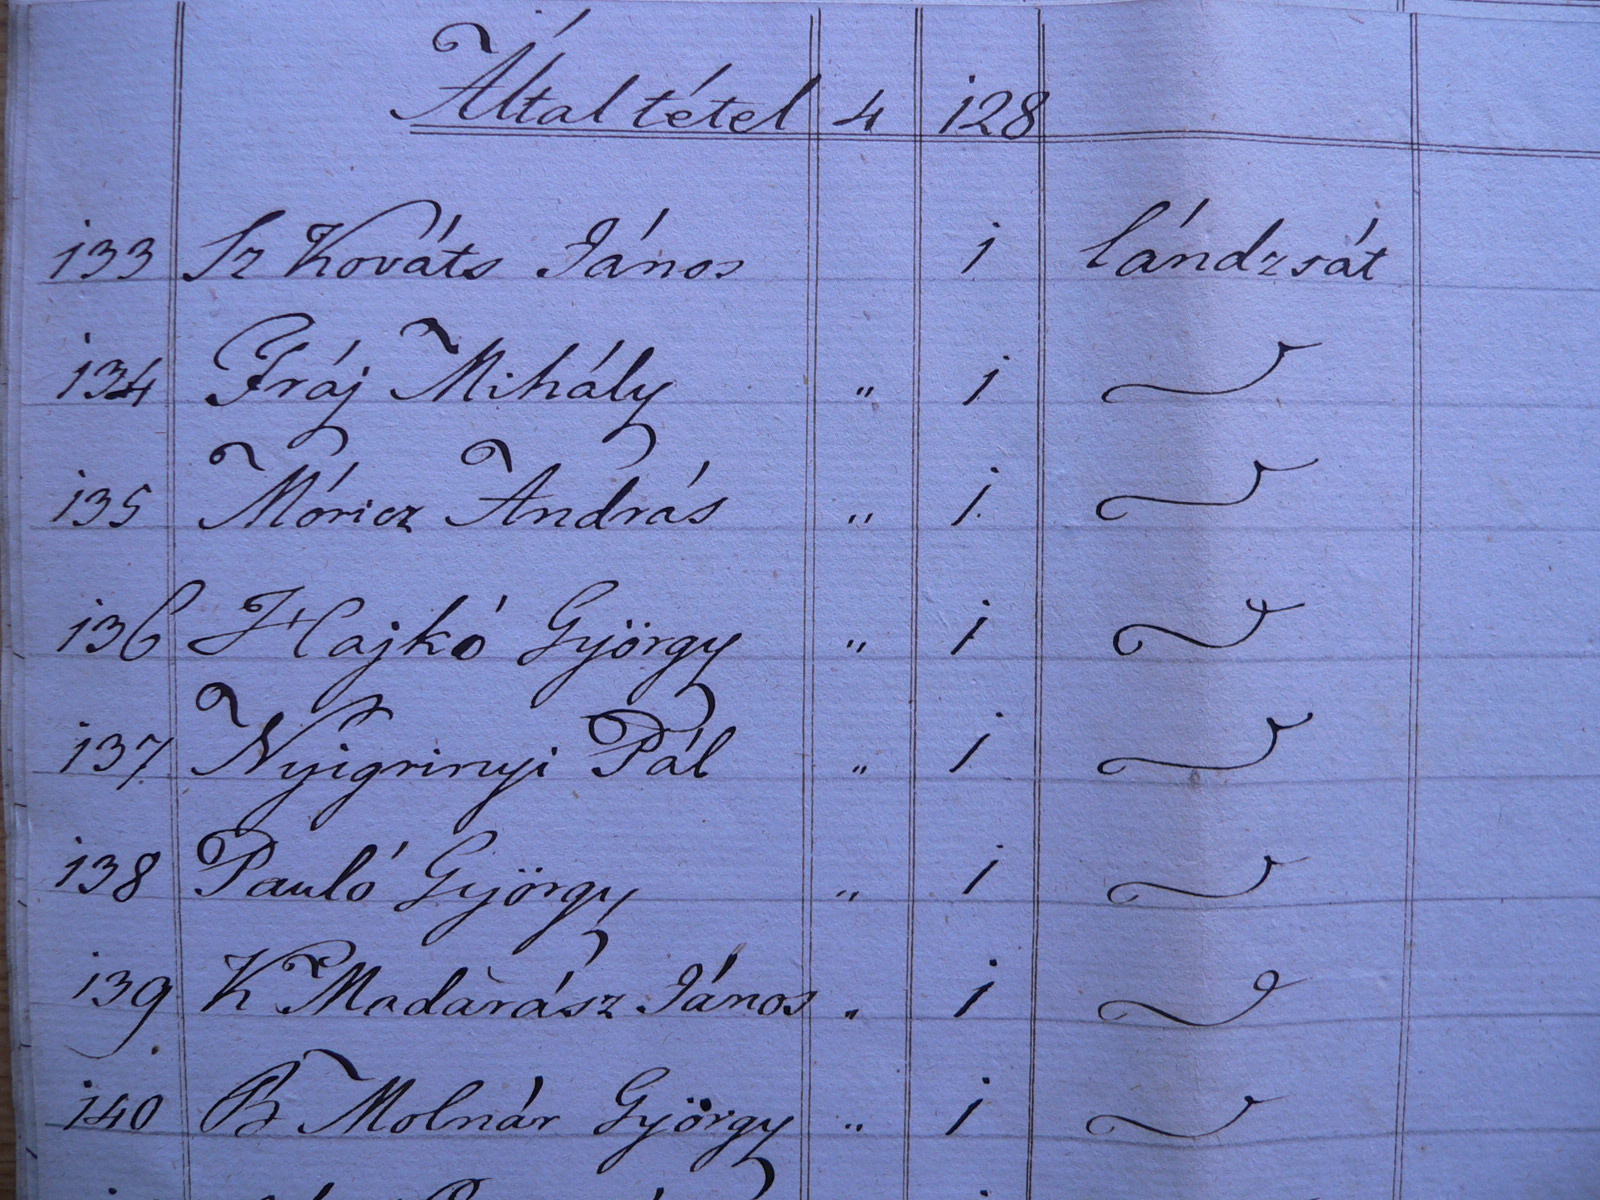 Által tétel 4 128
133 Sz Kováts János 1 lándzsát
134 Fráj Mihály " 1
135 Móricz András " 1
136 Hajkó György " 1
137 Nyigrinyi Pál " 1
138 Pauló György " 1
139 K Madarász János " 1
140 B Molnár György " 1